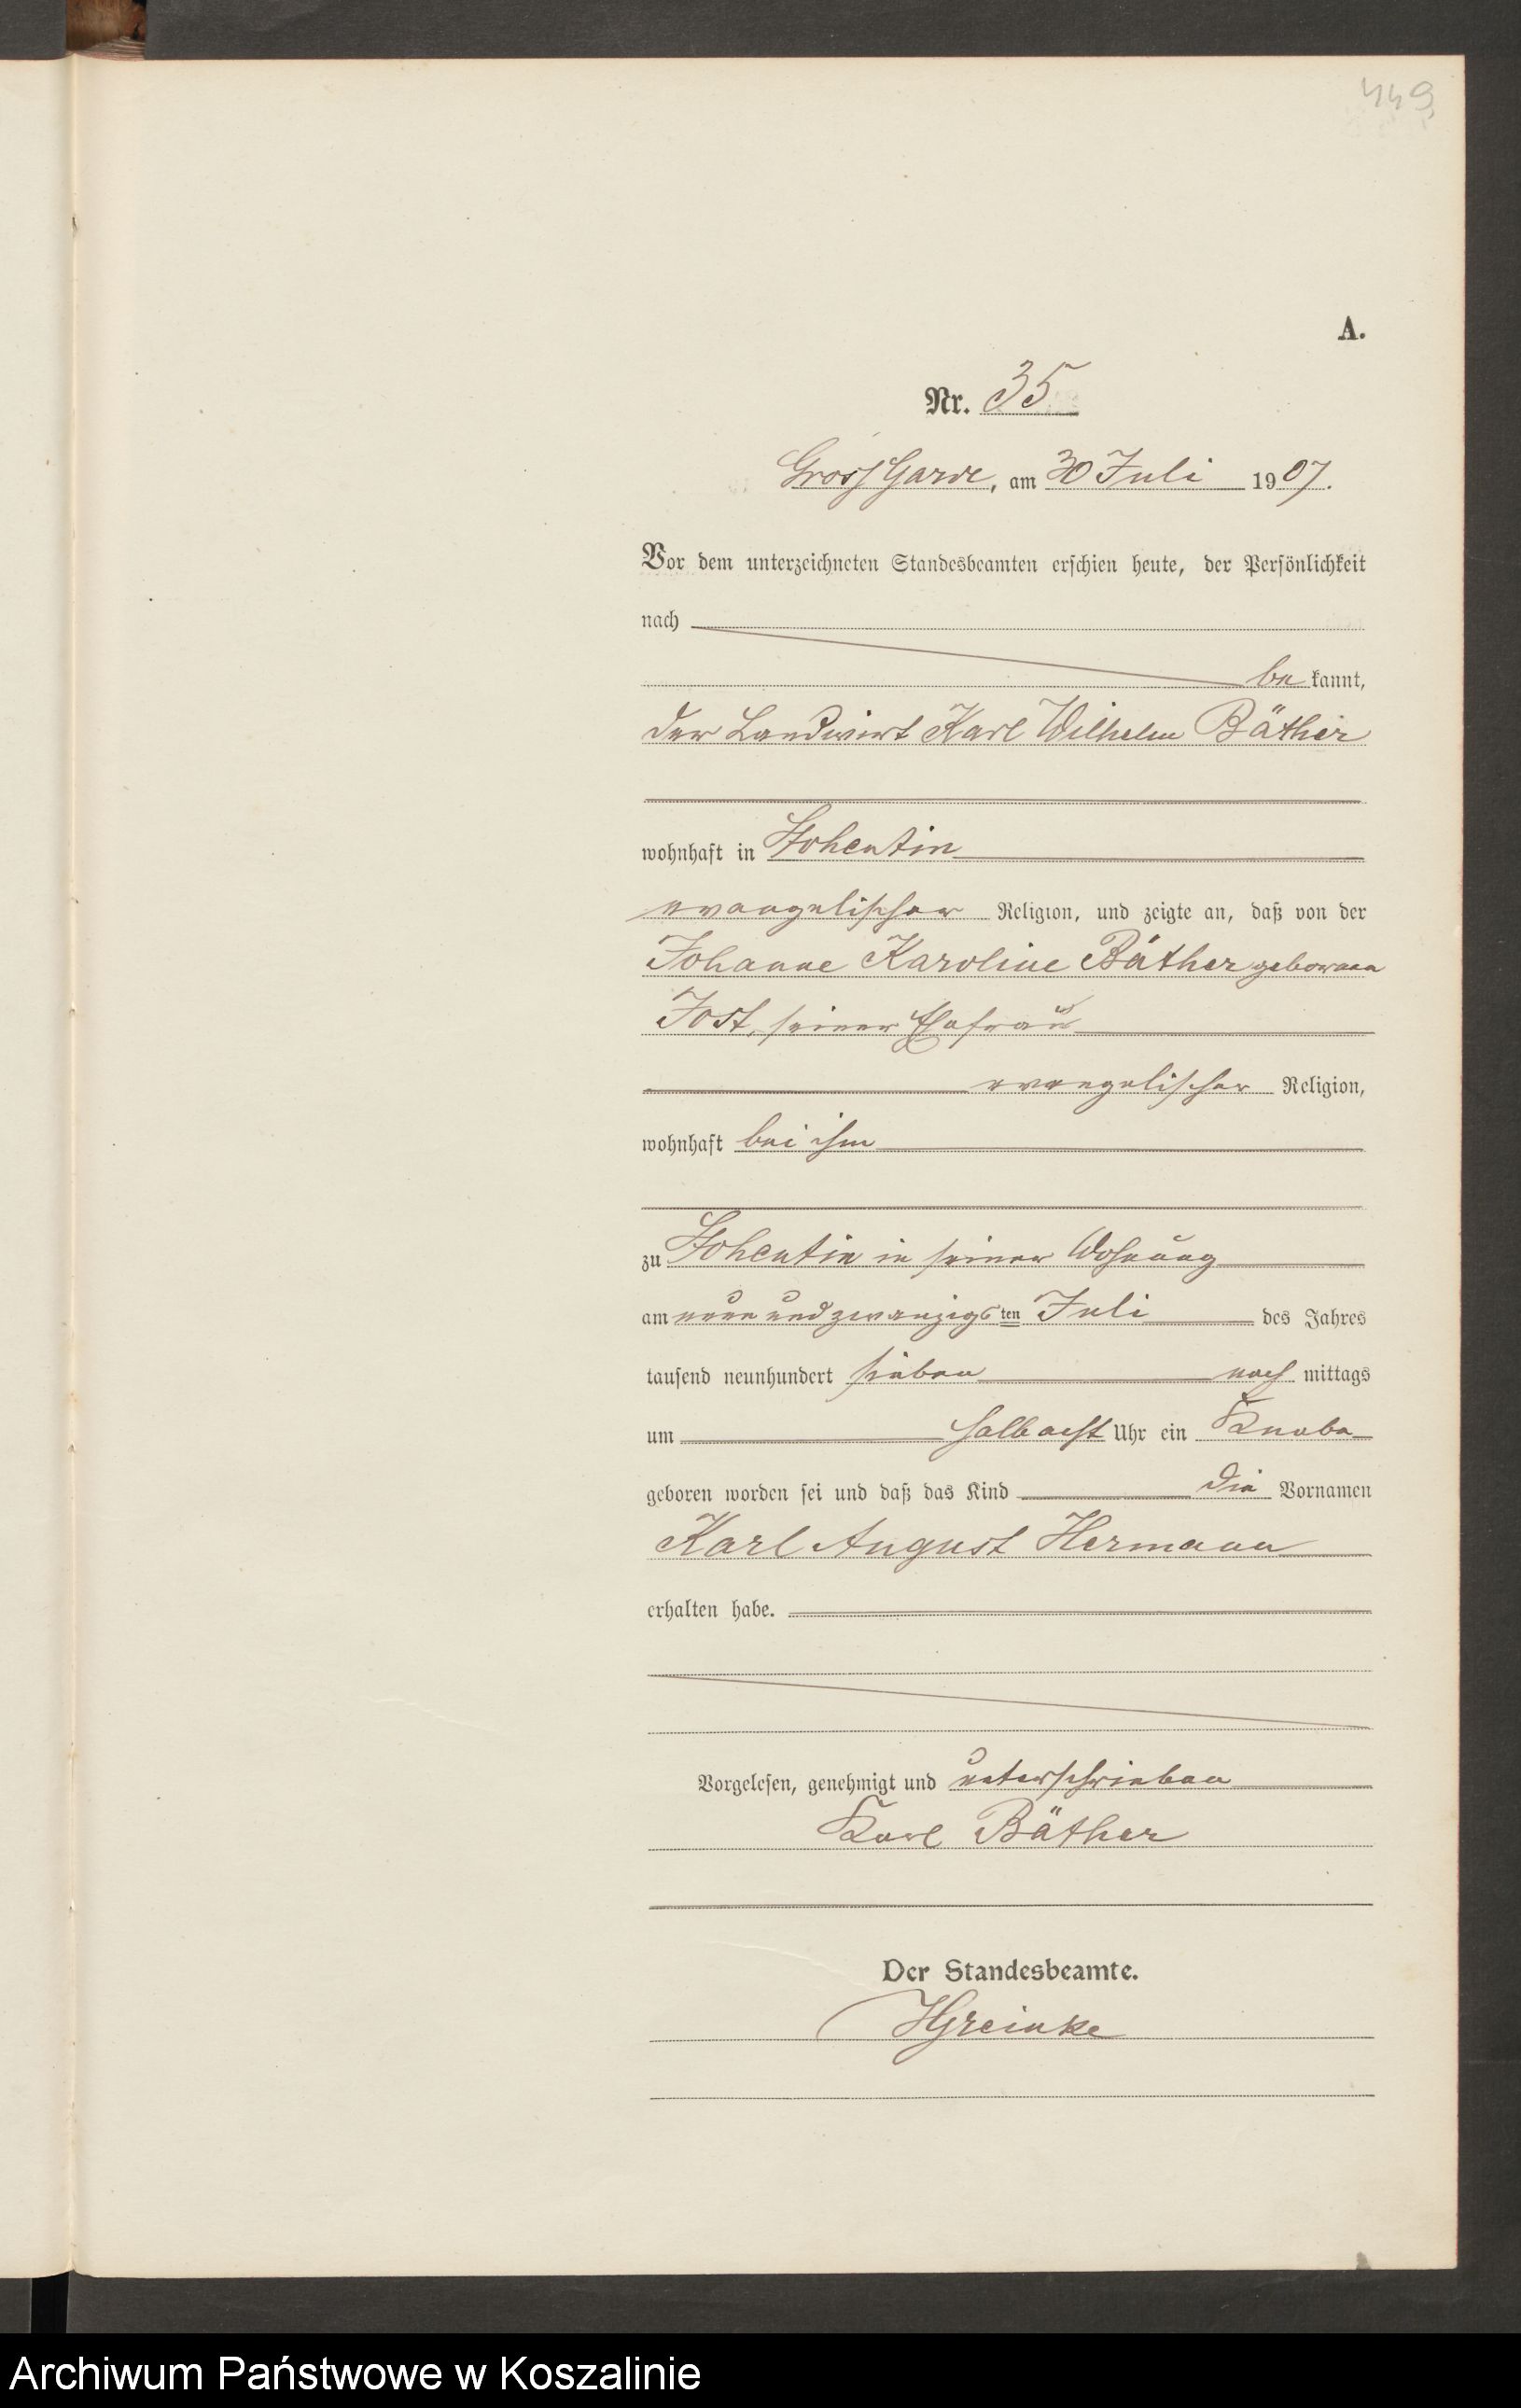 449
A.
Nr. 35
Gross Garde, am 30 Juli 1907.
Vor dem unterzeichneten Standesbeamten erschien heute, der Persönlichkeit
nach
be kannt,
der Landwirt Karl Wilhelm Räther
wohnhaft in Stohentin
evangelischer Religion, und zeigte an, daß von der
Johanne Karoline Räther geborenen
Jost, seiner Ehefrau
evangelischer Religion,
wohnhaft bei ihm
zu Stohentin in seiner Wohnung
am neun und zwanzigsten Juli des Jahres
tausend neunhundert sieben nach mittags
um halb acht Uhr ein Knabe
geboren worden sei und daß das Kind die Vornamen
Karl August Hermann
erhalten habe.
Vorgelesen, genehmigt und unterschrieben
Karl Räther
Der Standesbeamte.
HGreinke
Archiwum Państwowe w Koszalinie